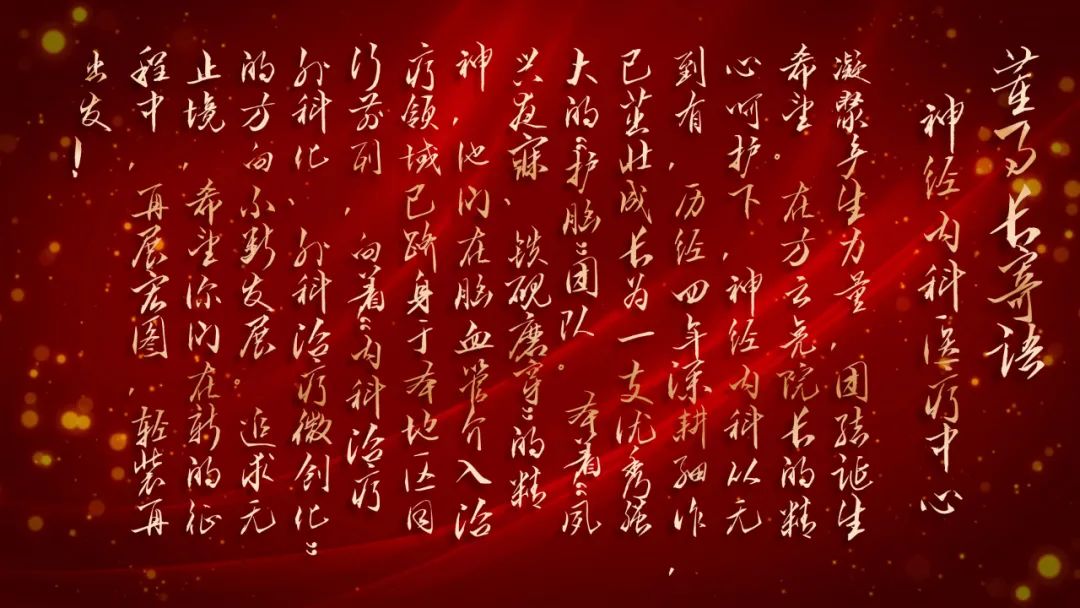 董事长寄语
神经内科医疗中心
凝聚产生力量，团结诞生
希望。在方云亮院长的精
心呵护下，神经内科从无
到有，历经四年深耕细作，
已茁壮成长为一支优秀强
大的“护脑”团队。本着“夙
兴夜寐、铁砚磨穿”的精
神，他们在脑血管介入治
疗领域已跻身于本地区同
行前列，向着“内科治疗
外科化、外科治疗微创化”
的方向不断发展。追求无
止境，希望你们在新的征
程中，再展宏图，轻装再
出发！